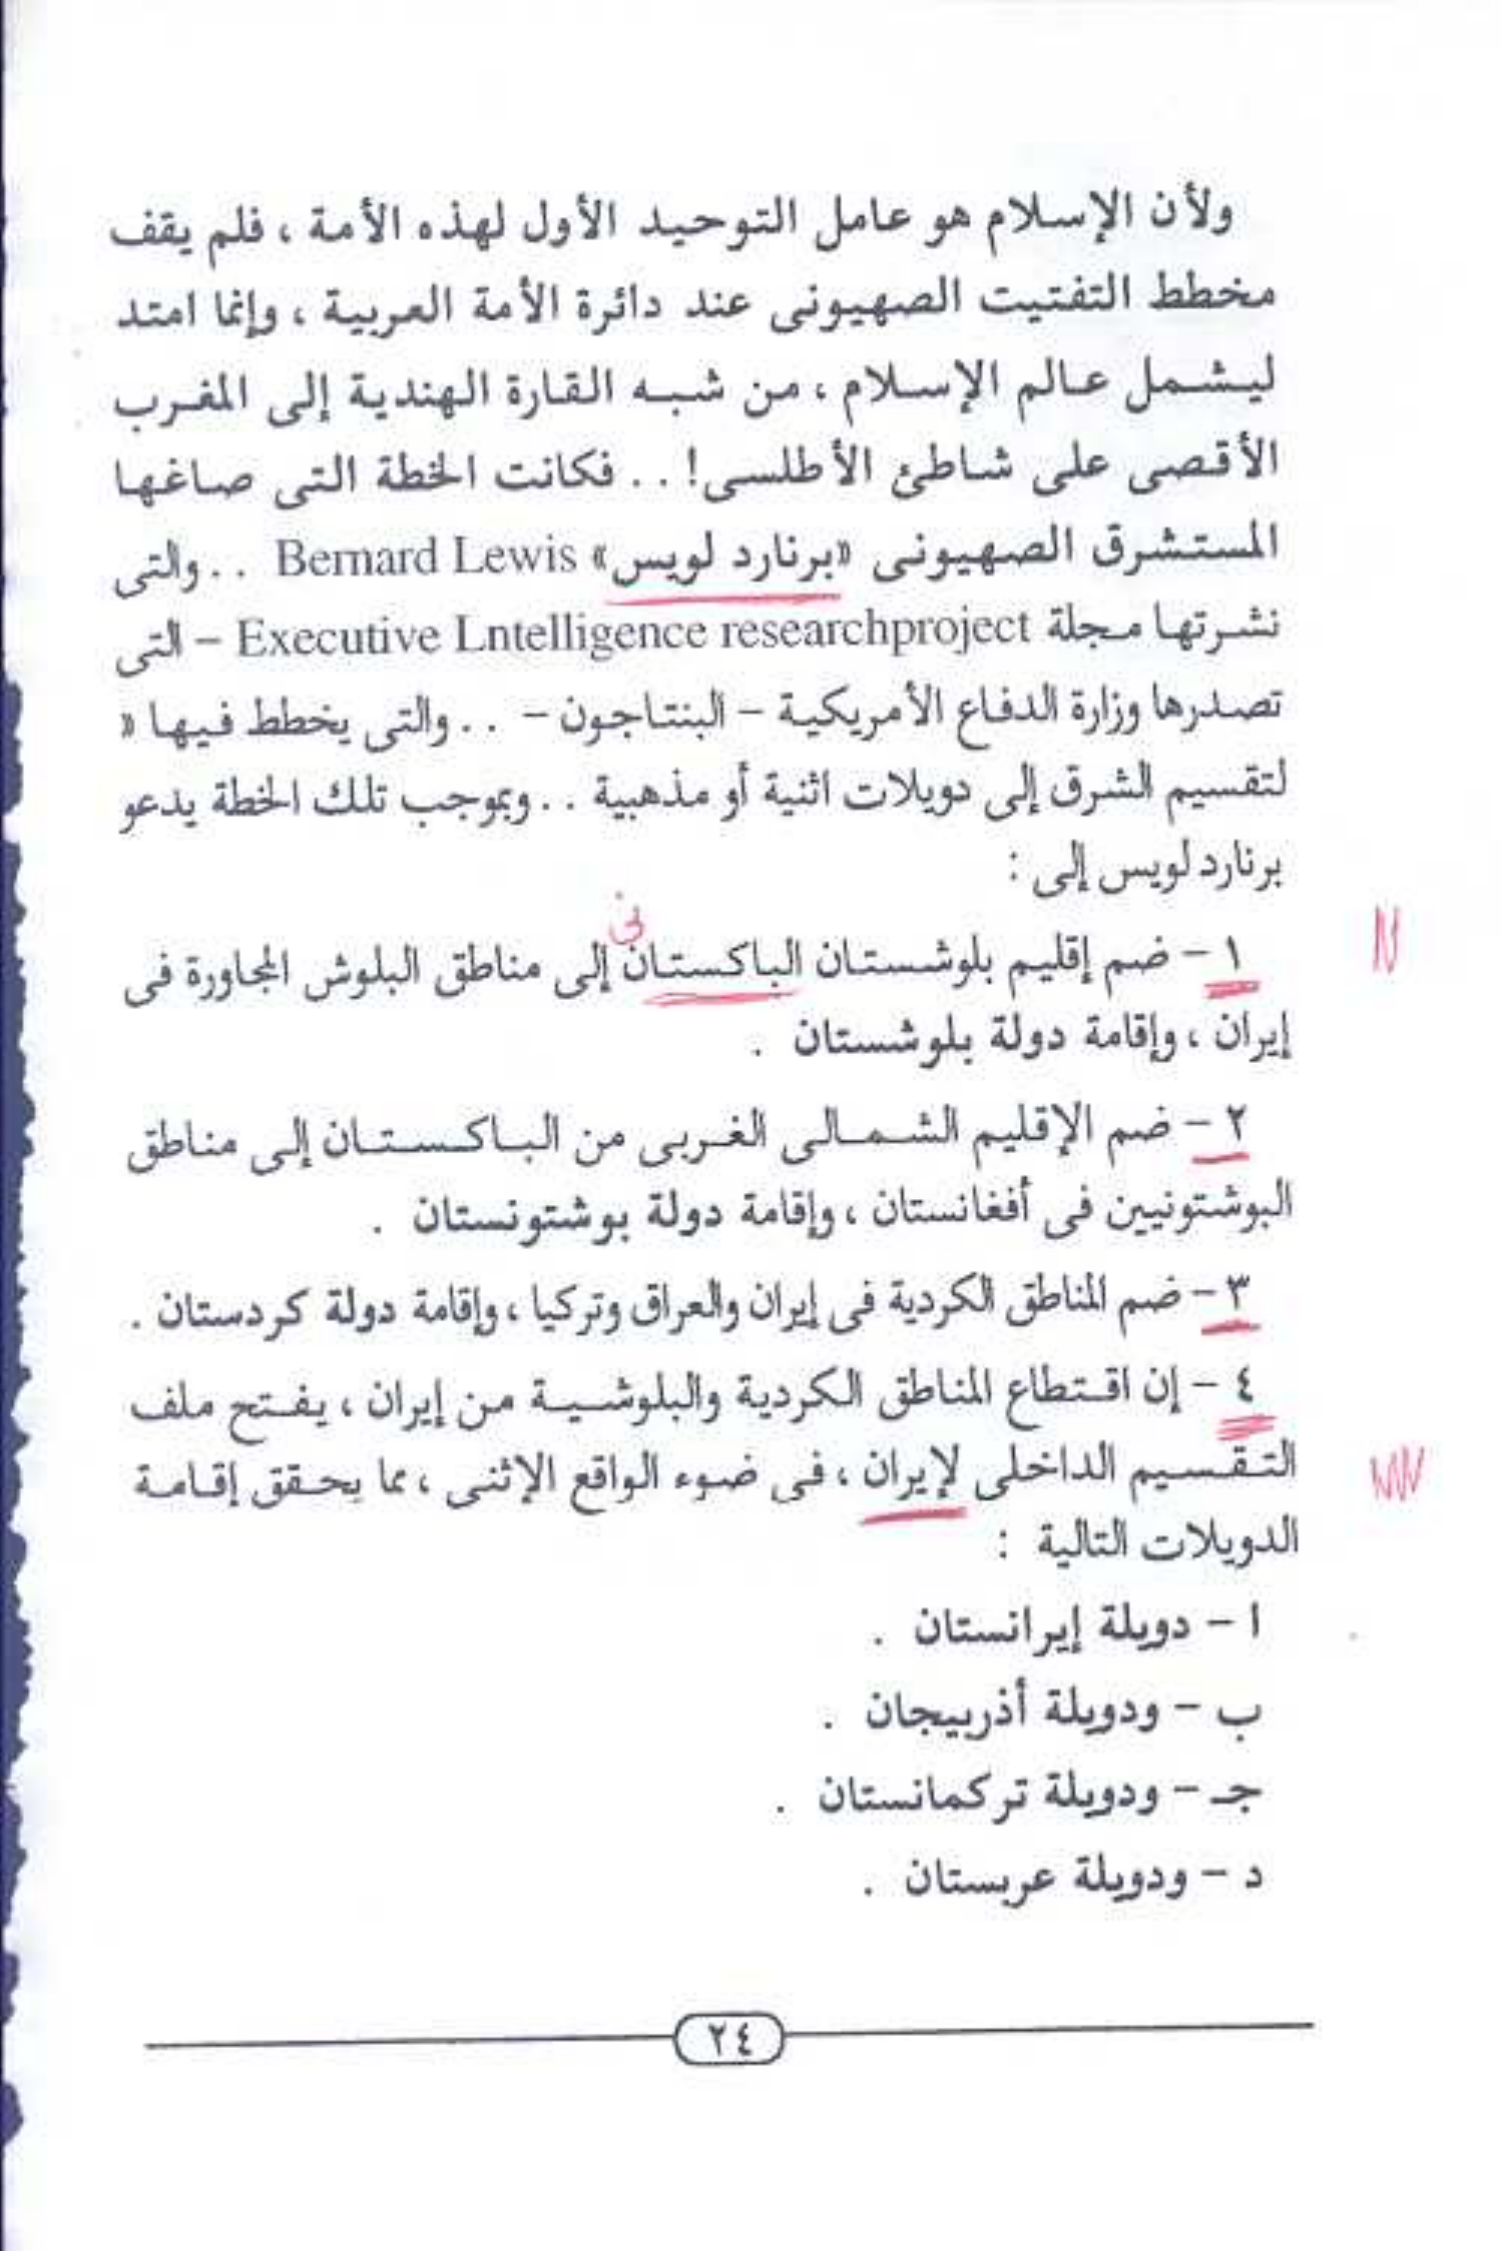 ولأن الإسلام هو عامل التوحيد الأول لهذه الأمة ، فلم يقف
مخطط التفتيت الصهيونى عند دائرة الأمة العربية ، وإنما امتد
ليشمل عالم الإسلام ، من شبه القارة الهندية إلى المغرب
الأقصى على شاطئ الأطلسى! . . فكانت الخطة التى صاغها
المستشرق الصهيونى «برنارد لويس» Bernard Lewis . . والتى
نشرتها مجلة Executive Lntelligence researchproject – التى
تصدرها وزارة الدفاع الأمريكية – البنتاجون – . . والتى يخطط فيها «
لتقسيم الشرق إلى دويلات اثنية أو مذهبية . . وبموجب تلك الخطة يدعو
برنارد لويس إلى :
١ – ضم إقليم بلوشستان الباكستان إلى مناطق البلوش المجاورة فى
إيران ، وإقامة دولة بلوشستان .
٢ – ضم الإقليم الشمالى الغربى من الباكستان إلى مناطق
البوشتونيين فى أفغانستان ، وإقامة دولة بوشتونستان .
٣ – ضم المناطق الكردية فى إيران والعراق وتركيا ، وإقامة دولة كردستان .
٤ – إن اقتطاع المناطق الكردية والبلوشية من إيران ، يفتح ملف
التقسيم الداخلى لإيران ، فى ضوء الواقع الإثنى ، مما يحقق إقامة
الدويلات التالية :
ا – دويلة إيرانستان .
ب – ودويلة أذربيجان .
جـ – ودويلة تركمانستان .
د – ودويلة عربستان .
٢٤